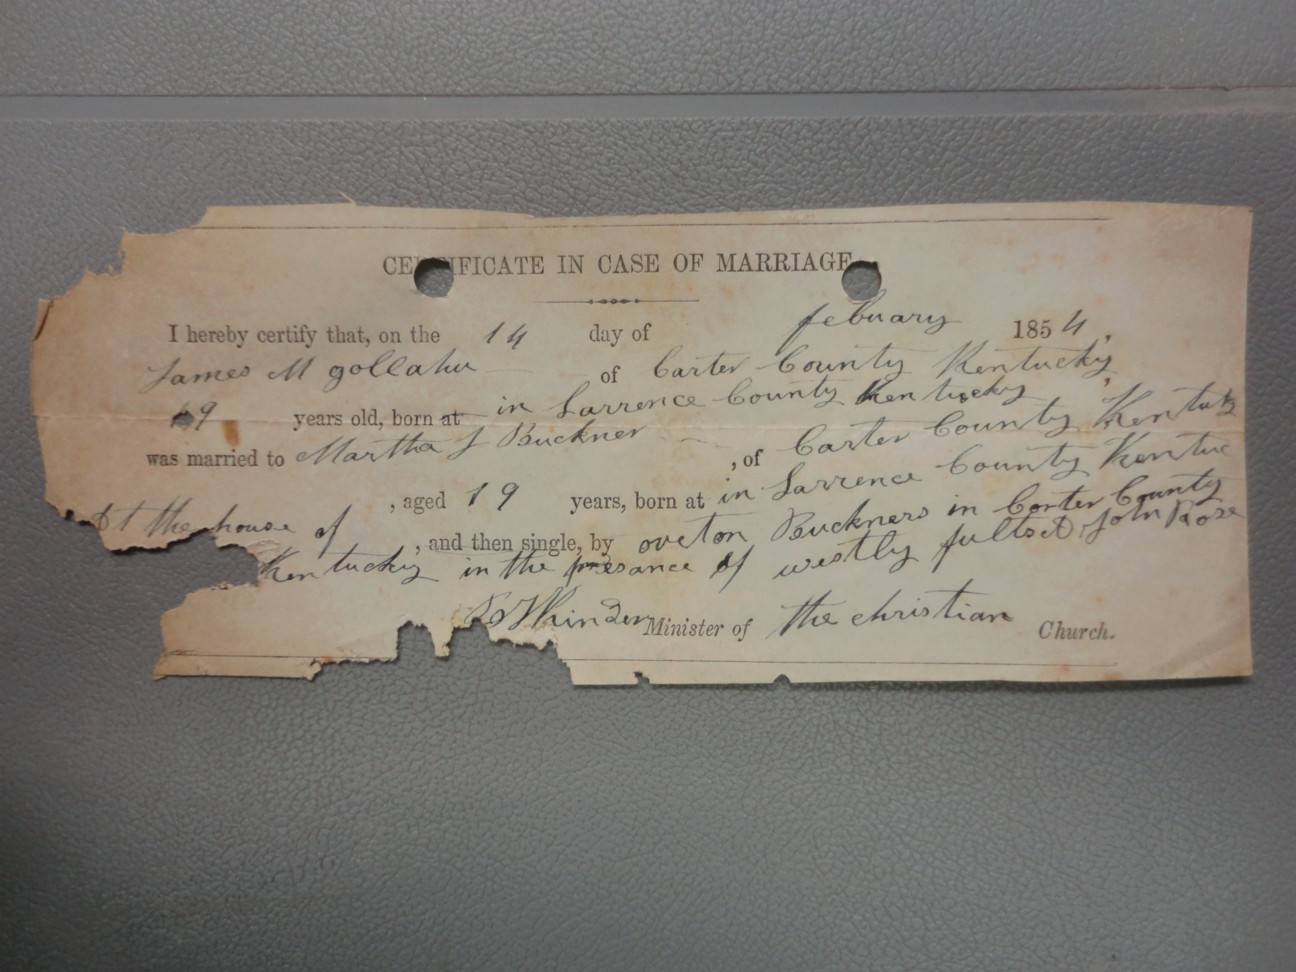 CERTIFICATE IN CASE OF MARRIAGE
I hereby certify that, on the 14 day of febuary 1854,
James M gollahu of Carter County Kentucky,
19 years old, born at in Larrence County Kentucky,
was married to Martha J Buckner, of Carter County Kentuk
, aged 19 years, born at in Larrence County Kentuc
At the house of, and then single, by oveton Buckners in Corter County
Kentucky in the presance of westly fults & John Rose
Minister of the christian Church.